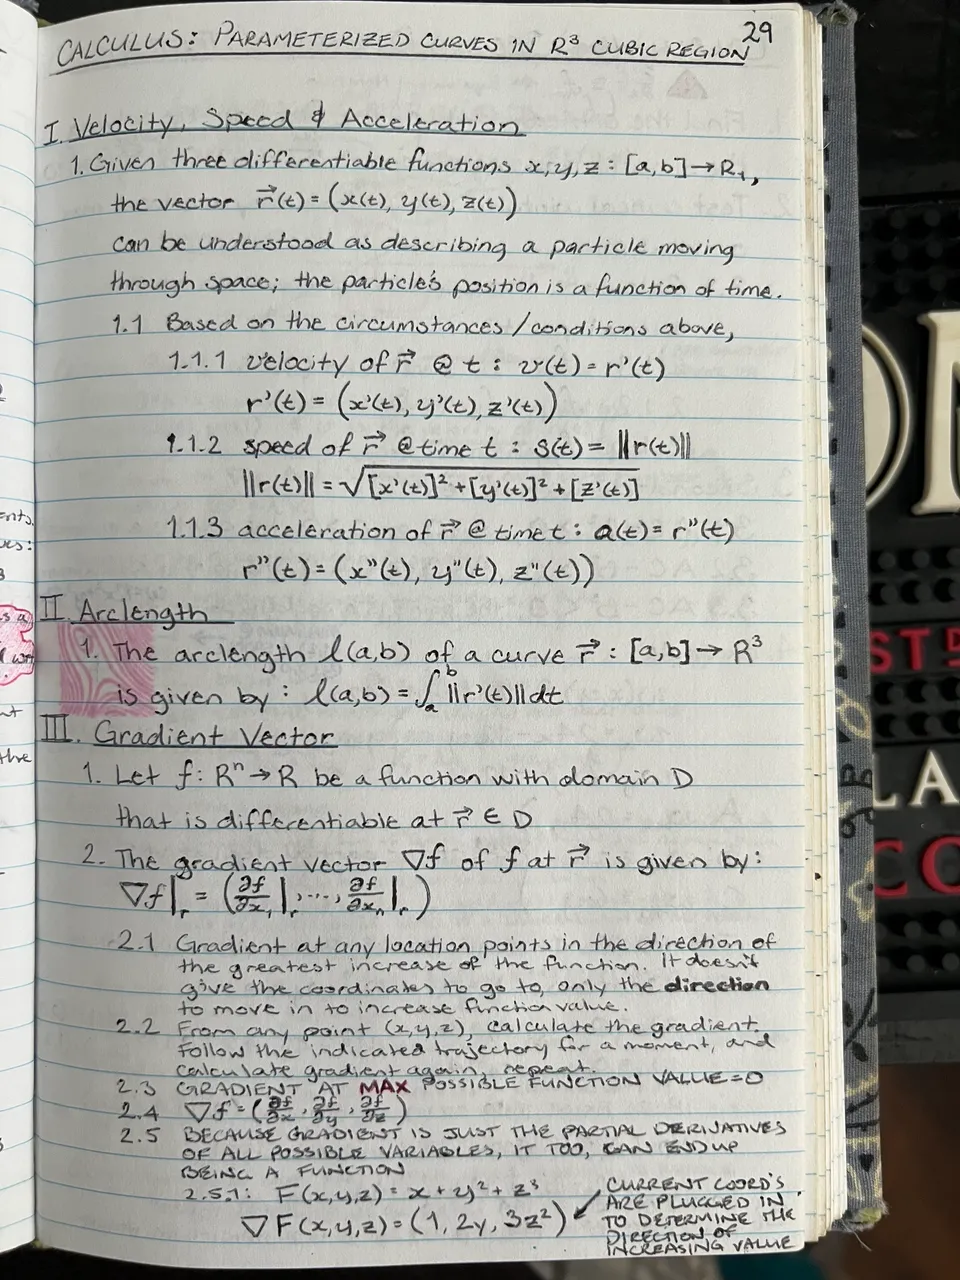 29
CALCULUS: PARAMETERIZED CURVES IN R³ CUBIC REGION
I. Velocity, Speed & Acceleration
1. Given three differentiable functions x, y, z : [a,b] → R₊,
the vector r⃗(t) = (x(t), y(t), z(t))
can be understood as describing a particle moving
through space; the particle's position is a function of time.
1.1 Based on the circumstances / conditions above,
1.1.1 velocity of r⃗ @ t : v(t) = r'(t)
r'(t) = (x'(t), y'(t), z'(t))
1.1.2 speed of r⃗ @ time t : S(t) = ||r(t)||
||r(t)|| = √[x'(t)]² + [y'(t)]² + [z'(t)]
1.1.3 acceleration of r⃗ @ time t : a(t) = r''(t)
r''(t) = (x''(t), y''(t), z''(t))
II. Arclength
1. The arclength l(a,b) of a curve r⃗ : [a,b] → R³
is given by : l(a,b) = ∫ₐᵇ ||r'(t)|| dt
III. Gradient Vector
1. Let f: Rⁿ → R be a function with domain D
that is differentiable at r⃗ ∈ D
2. The gradient vector ∇f of f at r⃗ is given by :
∇f|ᵣ = (∂f/∂x₁|ᵣ, ..., ∂f/∂xₙ|ᵣ)
2.1 Gradient at any location points in the direction of
the greatest increase of the function. It doesn't
give the coordinates to go to, only the direction
to move in to increase function value.
2.2 From any point (x,y,z), calculate the gradient.
Follow the indicated trajectory for a moment, and
calculate gradient again, repeat.
2.3 GRADIENT AT MAX POSSIBLE FUNCTION VALUE = 0
2.4 ∇f = (∂f/∂x, ∂f/∂y, ∂f/∂z)
2.5 BECAUSE GRADIENT IS JUST THE PARTIAL DERIVATIVES
OF ALL POSSIBLE VARIABLES, IT TOO, CAN END UP
BEING A FUNCTION
2.5.1: F(x,y,z) = x + y² + z³
∇F(x,y,z) = (1, 2y, 3z²)
CURRENT COORD'S
ARE PLUGGED IN
TO DETERMINE THE
DIRECTION OF
INCREASING VALUE
ents.
the
ST
LA
CO